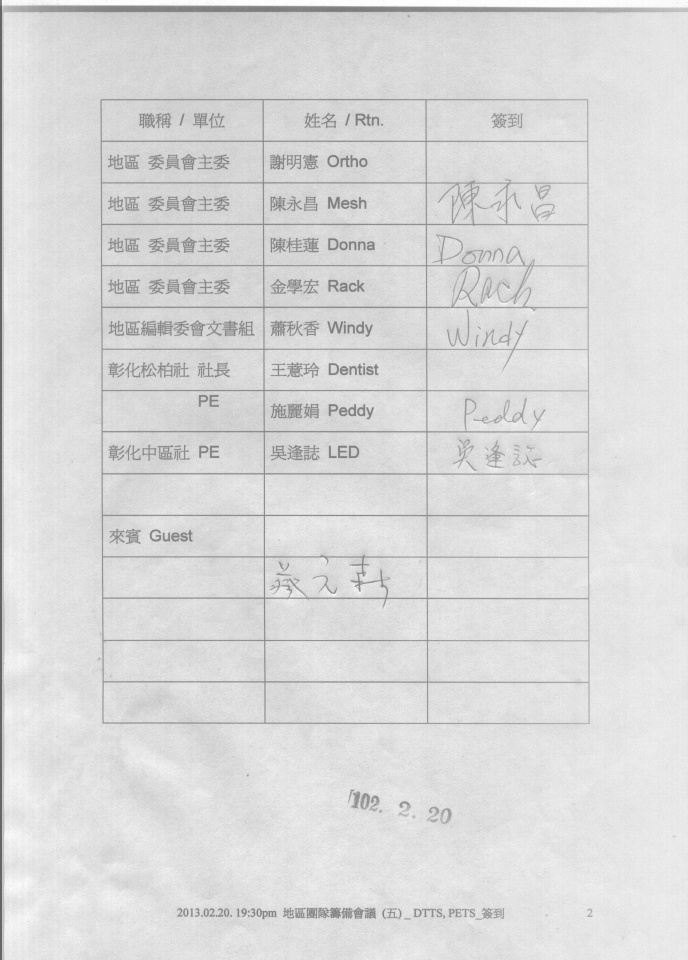 職稱 / 單位 姓名 / Rtn. 簽到
地區 委員會主委 謝明憲 Ortho
地區 委員會主委 陳永昌 Mesh 陳永昌
地區 委員會主委 陳桂蓮 Donna Donna
地區 委員會主委 金學宏 Rack Rack
地區編輯委會文書組 蕭秋香 Windy Windy
彰化松柏社 社長 王薏玲 Dentist
PE 施麗娟 Peddy Peddy
彰化中區社 PE 吳逢誌 LED 吳逢誌
來賓 Guest
蔡元
102. 2. 20
2013.02.20. 19:30pm 地區團隊籌備會議 (五) _ DTTS, PETS_簽到 2